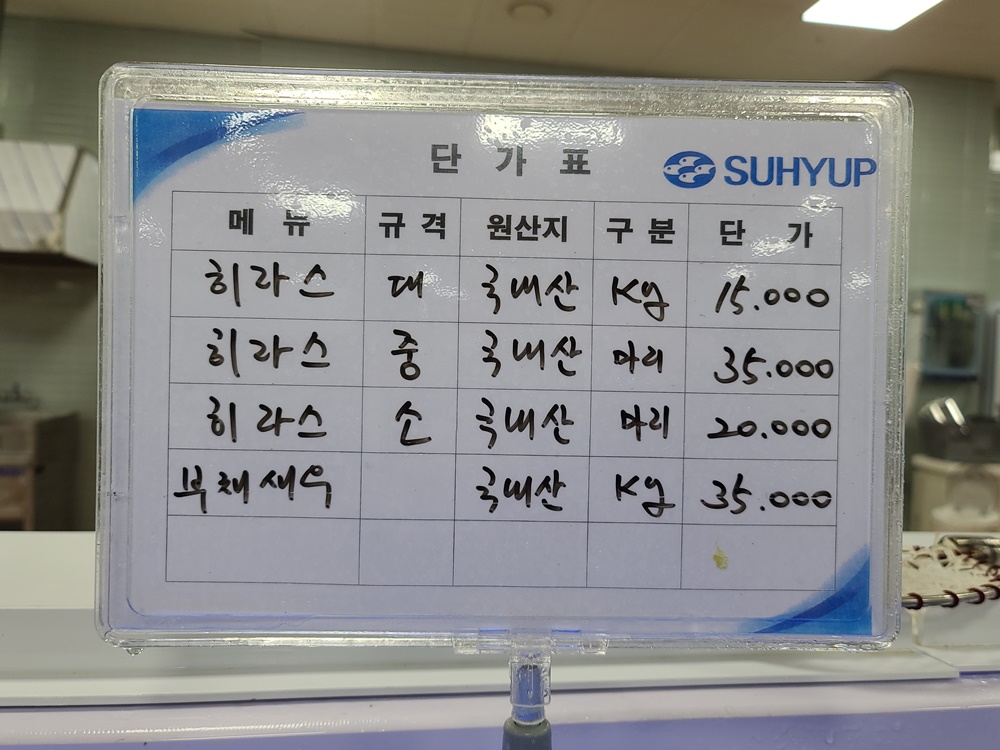 단 가 표
SUHYUP
메 뉴 규 격 원산지 구 분 단 가
히라스 대 국내산 Kg 15.000
히라스 중 국내산 마리 35.000
히라스 소 국내산 마리 20.000
부채새우 국내산 Kg 35.000